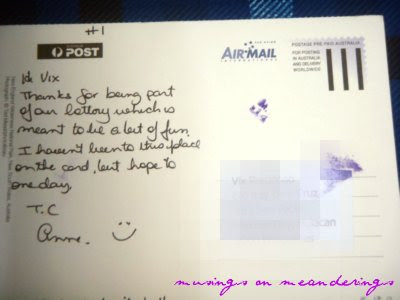 #1
POST
AIRMAIL
INTERNATIONAL
POSTAGE PRE PAID AUSTRALIA
FOR POSTING
IN AUSTRALIA
AND DELIVERY
WORLDWIDE
Hi Vix
Thanks for being part
of our lottery which is
meant to be a lot of fun.
I haven't been to this place
on the card, but hope to
one day.
T.C
Anne.
Vix
musings on meanderings